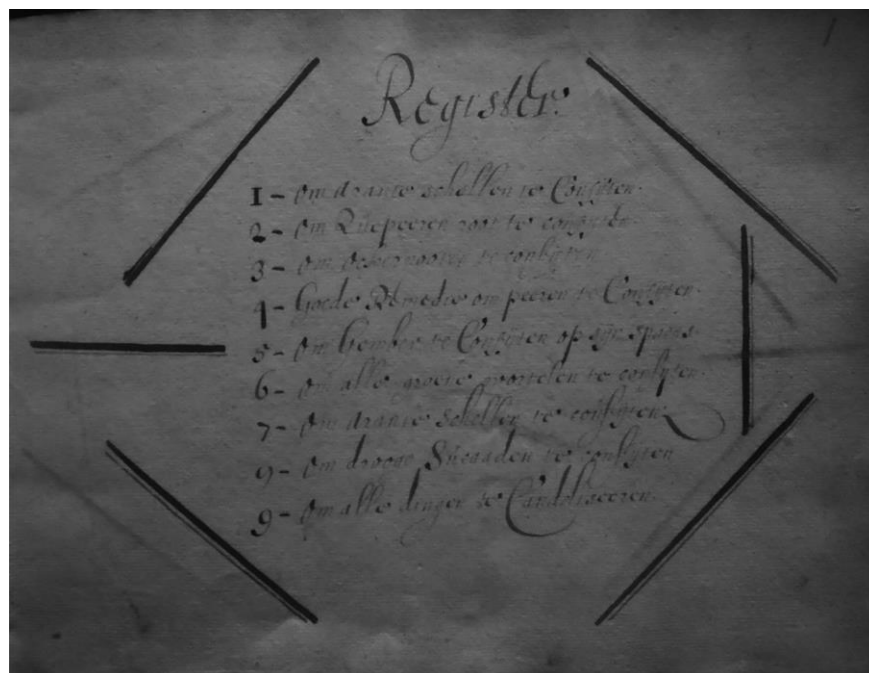 Register.
1 - Om oranie schellen te Confijten.
2 - Om Queepeeren root te confijten.
3 - Om te confijten
4 - Goede Remedie om peeren te Confijten.
5 - Om Gember te Confijten op sijn spaens.
6 - Om alle groene wortelen te confijten.
7 - Om oranie schellen te confijten.
9 - Om drooge Sucaaden te confijten
9 - Om alle dingen te Candeliseeren.